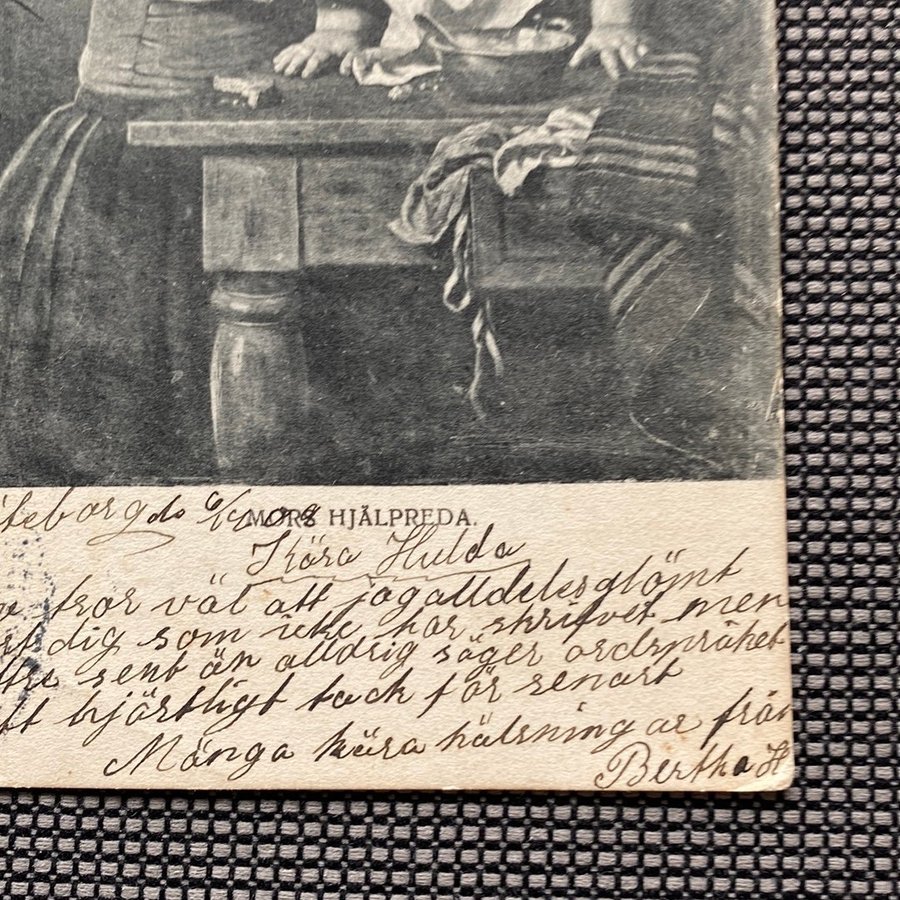 MORS HJÄLPREDA.
teborg do 6/
Kära Hulda
tror väl att jag alldeles glömt
dig som icke har skrifvet men
sent än alldrig säger ordspråket
tt hjärtligt tack för senast
Många kära hälsningar från
Bertha H